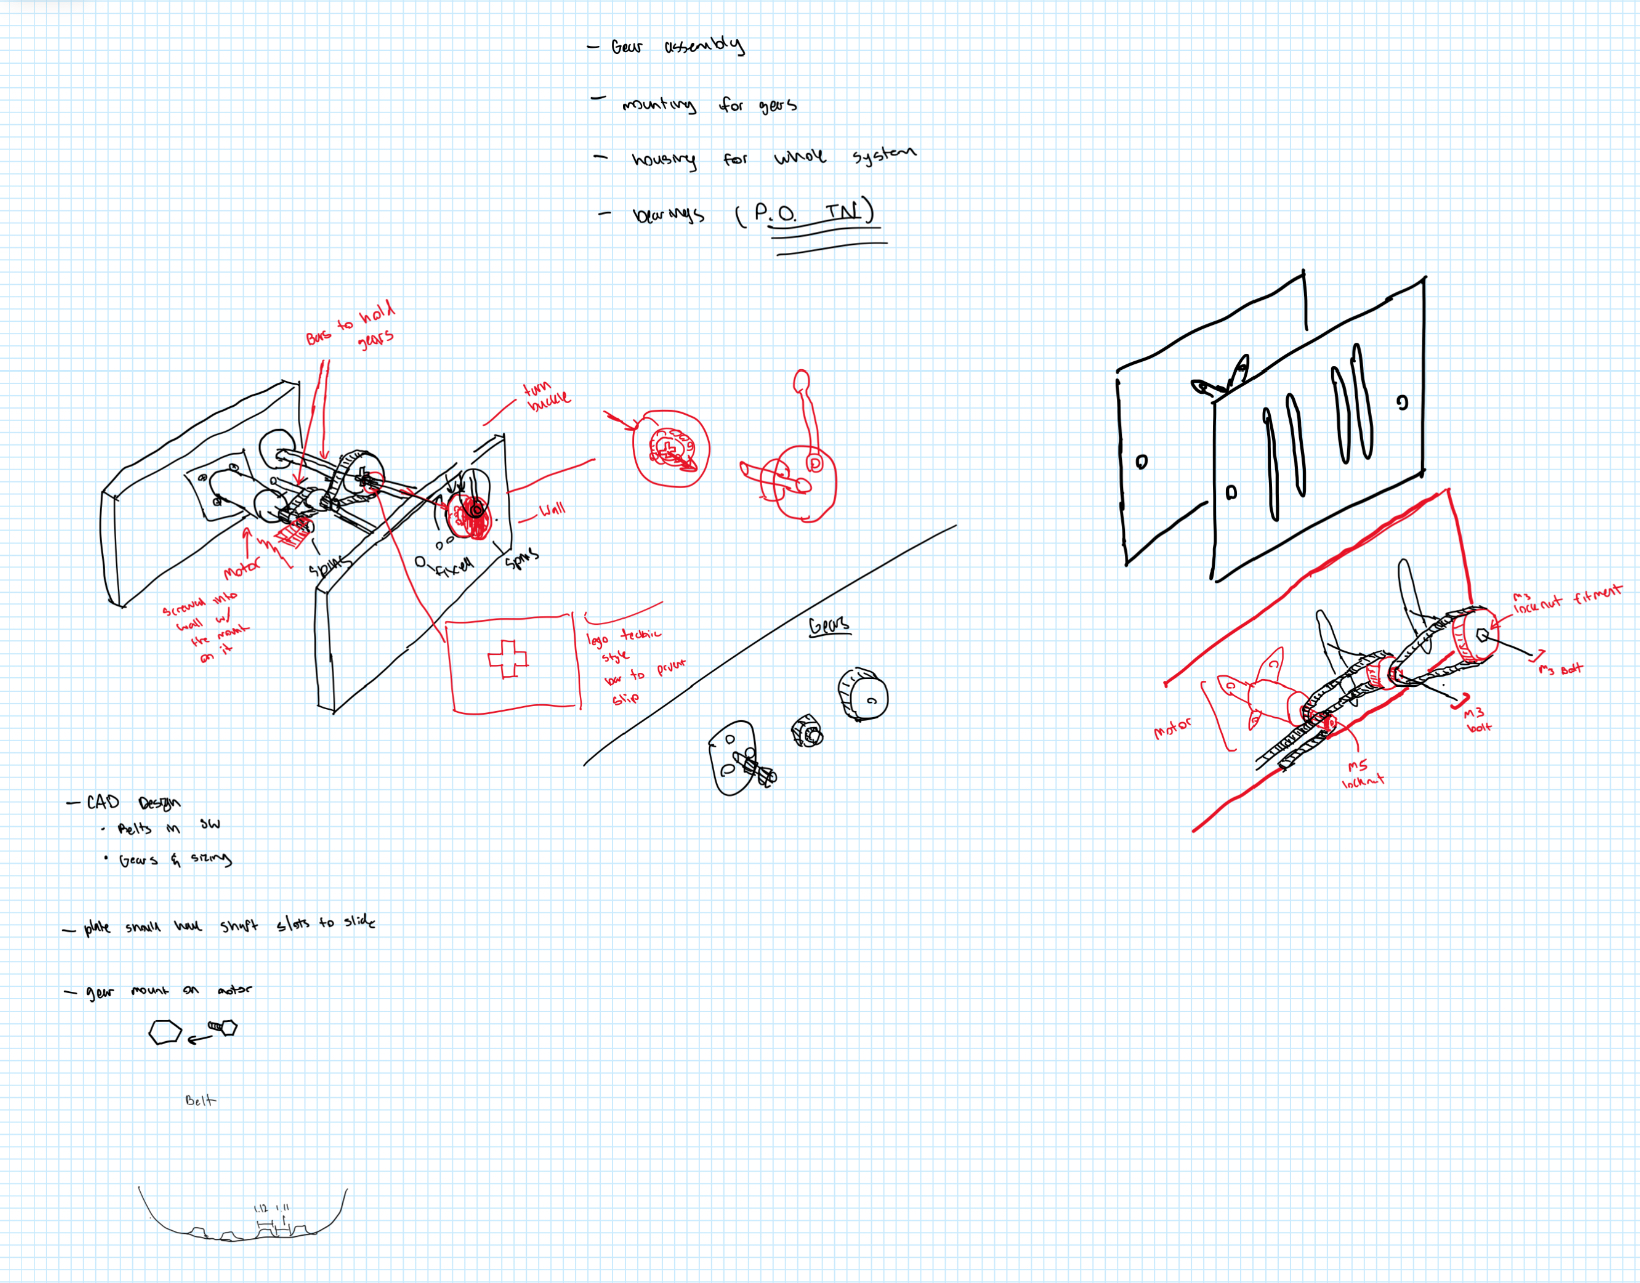 - Gear assembly
- mounting for gears
- housing for whole system
- bearings (P.O. TN)
Bars to hold
gears
turn
buckle
Wall
Motor
spins
fixed
spins
screwed into
wall w/
the mount
on it
lego technic
style
bar to prevent
slip
Gears
M3
locknut fitment
M3 Bolt
M3
bolt
Motor
M5
locknut
- CAD Design
• Belts in SW
• Gears & sizing
- plate should have shaft slots to slide
- gear mount on motor
Belt
1.12 1.11